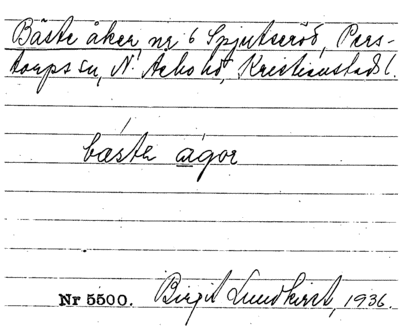 Bäste åker, nr 6 Spjutseröd, Pers-
torps sn, N. Åsbo hd, Kristianstads l.
bástə ágor
Nr 5500. Birgit Lundkvist, 1936.